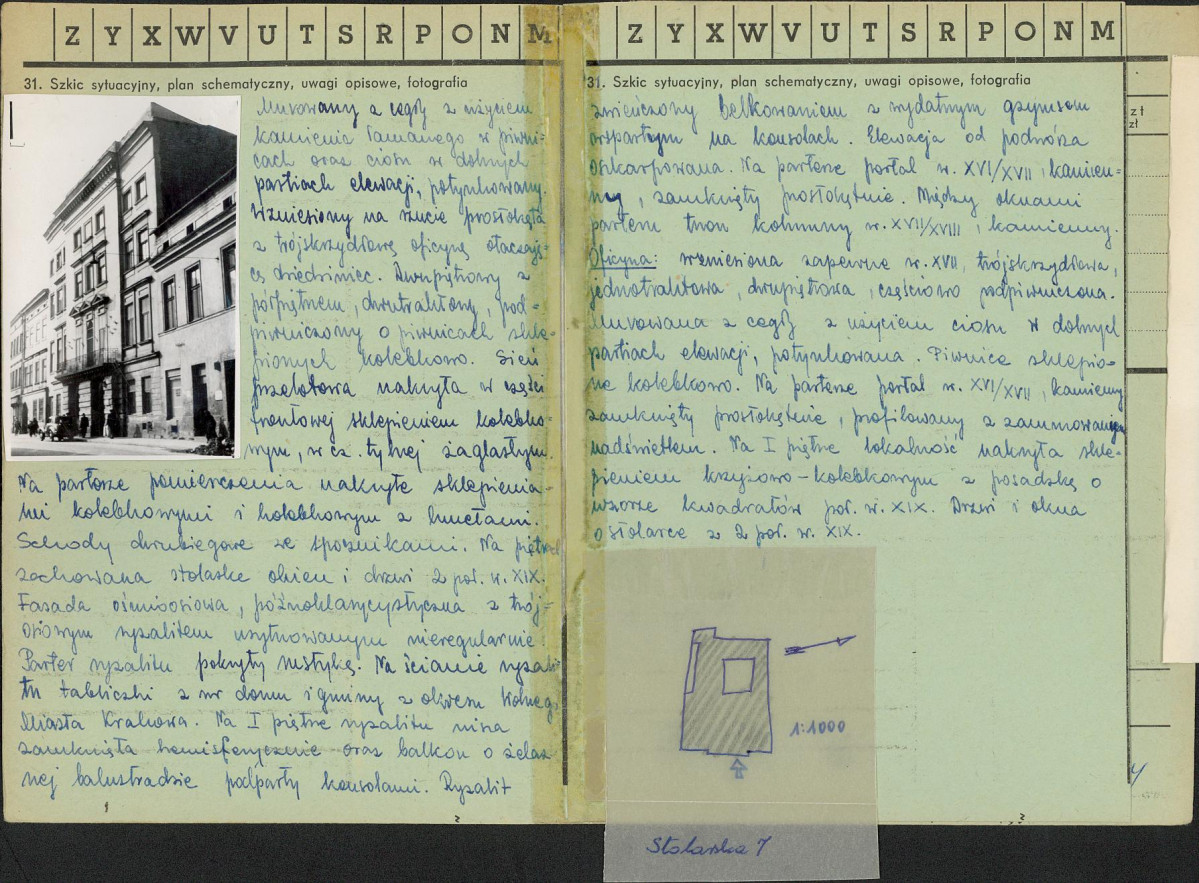 Z Y X W V U T S R P O N M
31. Szkic sytuacyjny, plan schematyczny, uwagi opisowe, fotografia
Murowany z cegły z użyciem
kamienia łamanego w piwni-
cach oraz ciosu w dolnych
partiach elewacji, potynkowany.
Wzniesiony na rzucie prostokąta
z trójskrzydłową oficyną otaczają-
cą dziedziniec. Dwupiętrowy z
półpiętrem, dwutraktowy, pod-
piwniczony o piwnicach skle-
pionych kolebkowo. Sień
przelotowa nakryta w części
frontowej sklepieniem kolebko-
wym, w cz. tylnej żaglastym.
Na parterze pomieszczenia nakryte sklepienia-
mi kolebkowymi i kolebkowym z lunetami.
Schody dwubiegowe ze spocznikami. Na piętrach
zachowana stolarka okien i drzwi 2 poł. w. XIX.
Fasada ośmioosiowa, późnoklasycystyczna z trój-
osiowym ryzalitem usytuowanym nieregularnie.
Parter ryzalitu pokryty rustyką. Na ścianie ryzali-
tu tabliczki z nr domu i gminy z okresu Wolnego
Miasta Krakowa. Na I piętrze ryzalitu nisza
zamknięta hemisferycznie oraz balkon o żelaz-
nej balustradzie podparty konsolami. Ryzalit
1
2
Z Y X W V U T S R P O N M
31. Szkic sytuacyjny, plan schematyczny, uwagi opisowe, fotografia
zwieńczony belkowaniem z wydatnym gzymsem
wspartym na konsolach. Elewacja od podwórza
oskarpowana. Na parterze portal w. XVI/XVII, kamien-
ny, zamknięty prostokątnie. Między oknami
parteru trzon kolumny w. XVII/XVIII, kamienny.
Oficyna: wzniesiona zapewne w. XVII, trójskrzydłowa,
jednotraktowa, dwupiętrowa, częściowo podpiwniczona.
Murowana z cegły z użyciem ciosu w dolnych
partiach elewacji, potynkowana. Piwnice sklepio-
ne kolebkowo. Na parterze portal w. XVI/XVII, kamienny
zamknięty prostokątnie, profilowany z zamurowanym
nadświetlem. Na I piętrze lokalność nakryta skle-
pieniem krzyżowo-kolebkowym z posadzką o
wzorze kwadratów poł. w. XIX. Drzwi i okna
o stolarce z 2 poł. w. XIX.
1:1000
2
Stolarska 7
zł
zł